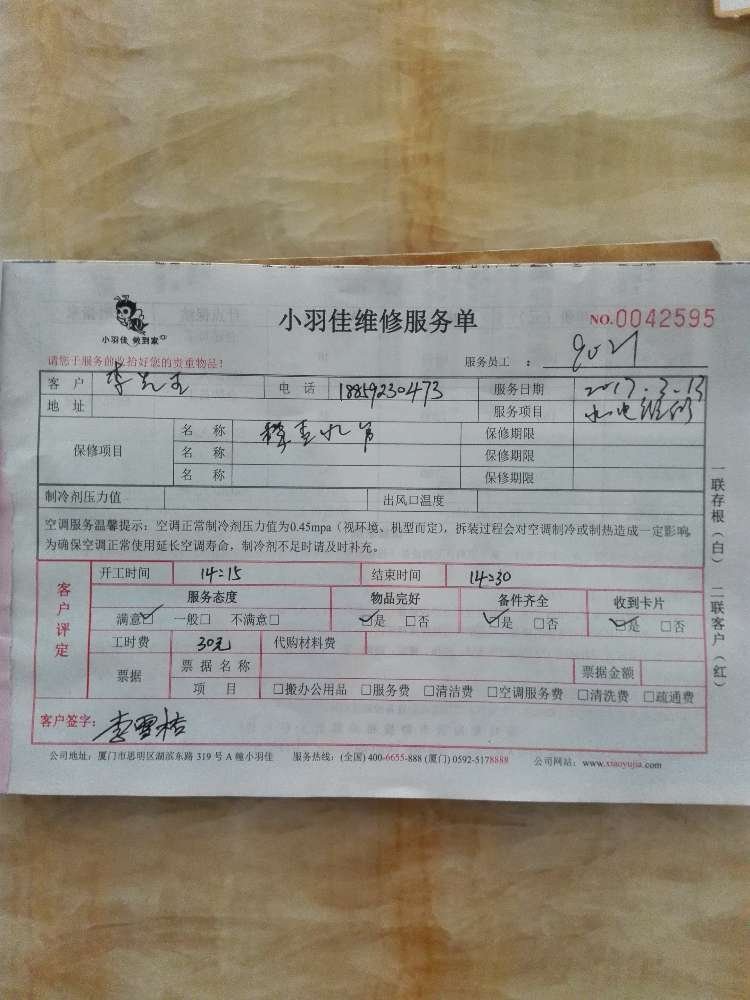 小羽佳 做到家
小羽佳维修服务单
NO.0042595
请您于服务前收拾好您的贵重物品!
服务员工 : 9021
客 户 李先生 电 话 18859230473 服务日期 2017.3.13
地 址 服务项目 水电维修
保修项目 名 称 保修期限
名 称 保修期限
名 称 保修期限
制冷剂压力值 出风口温度
空调服务温馨提示:空调正常制冷剂压力值为0.45mpa(视环境、机型而定),拆装过程会对空调制冷或制热造成一定影响,
为确保空调正常使用延长空调寿命,制冷剂不足时请及时补充。
客户评定
开工时间 14:15 结束时间 14:30
服务态度 物品完好 备件齐全 收到卡片
满意☑ 一般□ 不满意□ ☑是 □否 ☑是 □否 ☑是 □否
工时费 30元 代购材料费
票据 票据名称 票据金额
项 目 □搬办公用品 □服务费 □清洁费 □空调服务费 □清洗费 □疏通费
客户签字:
公司地址:厦门市思明区湖滨东路 319 号 A 幢小羽佳 服务热线:(全国) 400-6655-888 (厦门) 0592-5178888 公司网站:www.xiaoyujia.com
一联存根(白) 二联客户(红)